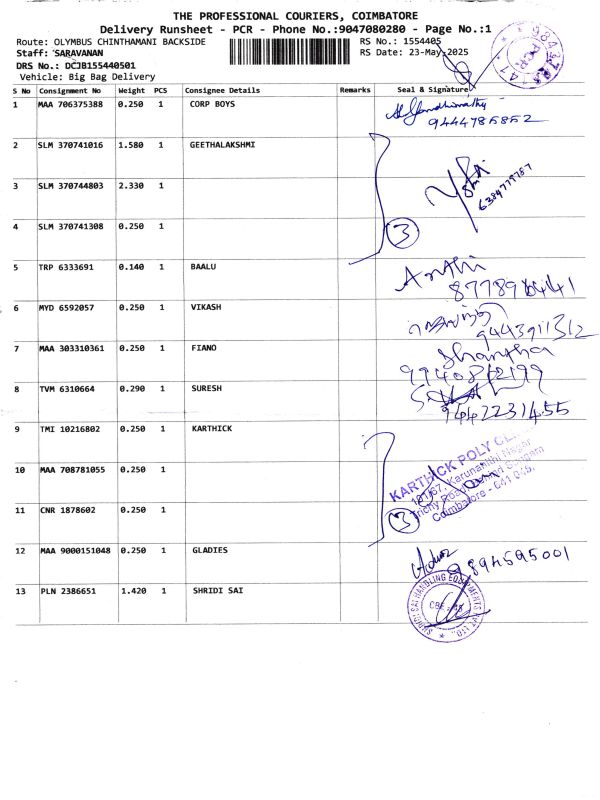 THE PROFESSIONAL COURIERS, COIMBATORE
Delivery Runsheet - PCR - Phone No.:9047080280 - Page No.:1
Route: OLYMBUS CHINTHAMANI BACKSIDE RS No.: 1554405
Staff: SARAVANAN RS Date: 23-May-2025
DRS No.: DCJB155440501
Vehicle: Big Bag Delivery
S No Consignment No Weight PCS Consignee Details Remarks Seal & Signature
1 MAA 706375388 0.250 1 CORP BOYS
9444785852
2 SLM 370741016 1.580 1 GEETHALAKSHMI
3 SLM 370744803 2.330 1
6384779787
4 SLM 370741308 0.250 1
3
5 TRP 6333691 0.140 1 BAALU
6 MYD 6592057 0.250 1 VIKASH
9443911312
7 MAA 303310361 0.250 1 FIANO Shantha
8 TVM 6310664 0.290 1 SURESH
9442231455
9 TMI 10216802 0.250 1 KARTHICK
KARTHICK POLY
Karunanithi Nagar
10 MAA 708781055 0.250 1
Coimbatore - 641
11 CNR 1878602 0.250 1
3
12 MAA 9000151048 0.250 1 GLADIES
9894595001
13 PLN 2386651 1.420 1 SHRIDI SAI
SHRIDI SAI HANDLING EQUIPMENTS PVT LTD.,